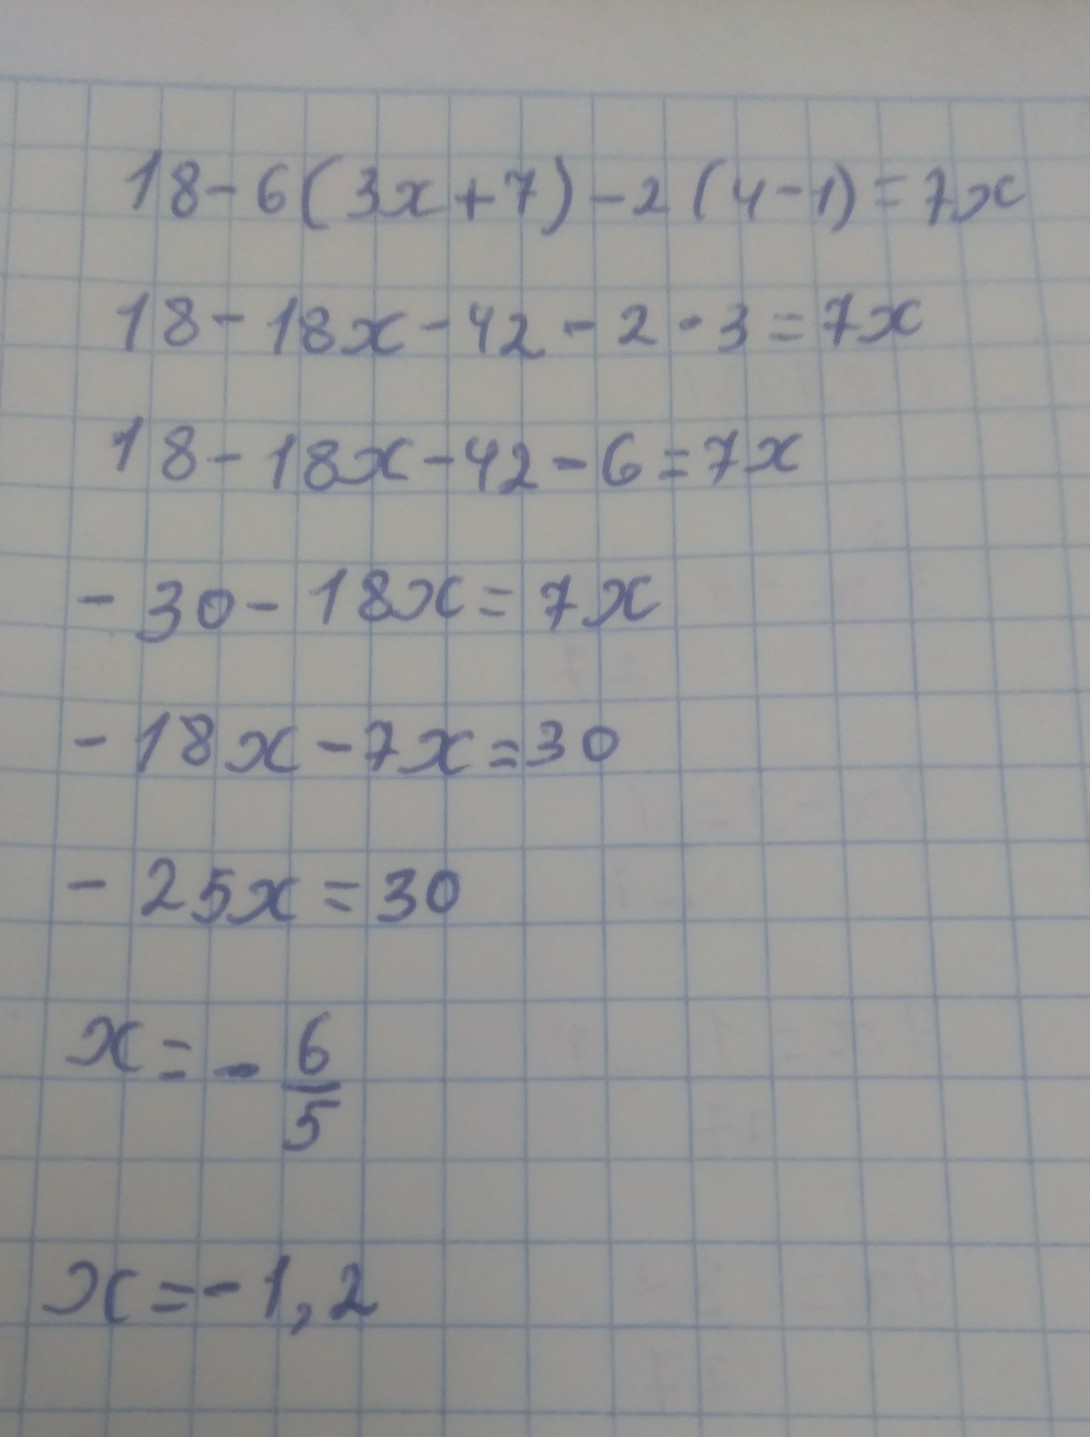 18-6(3x+7)-2(4-1)=7x
18-18x-42-2·3=7x
18-18x-42-6=7x
-30-18x=7x
-18x-7x=30
-25x=30
x=-6/5
x=-1,2